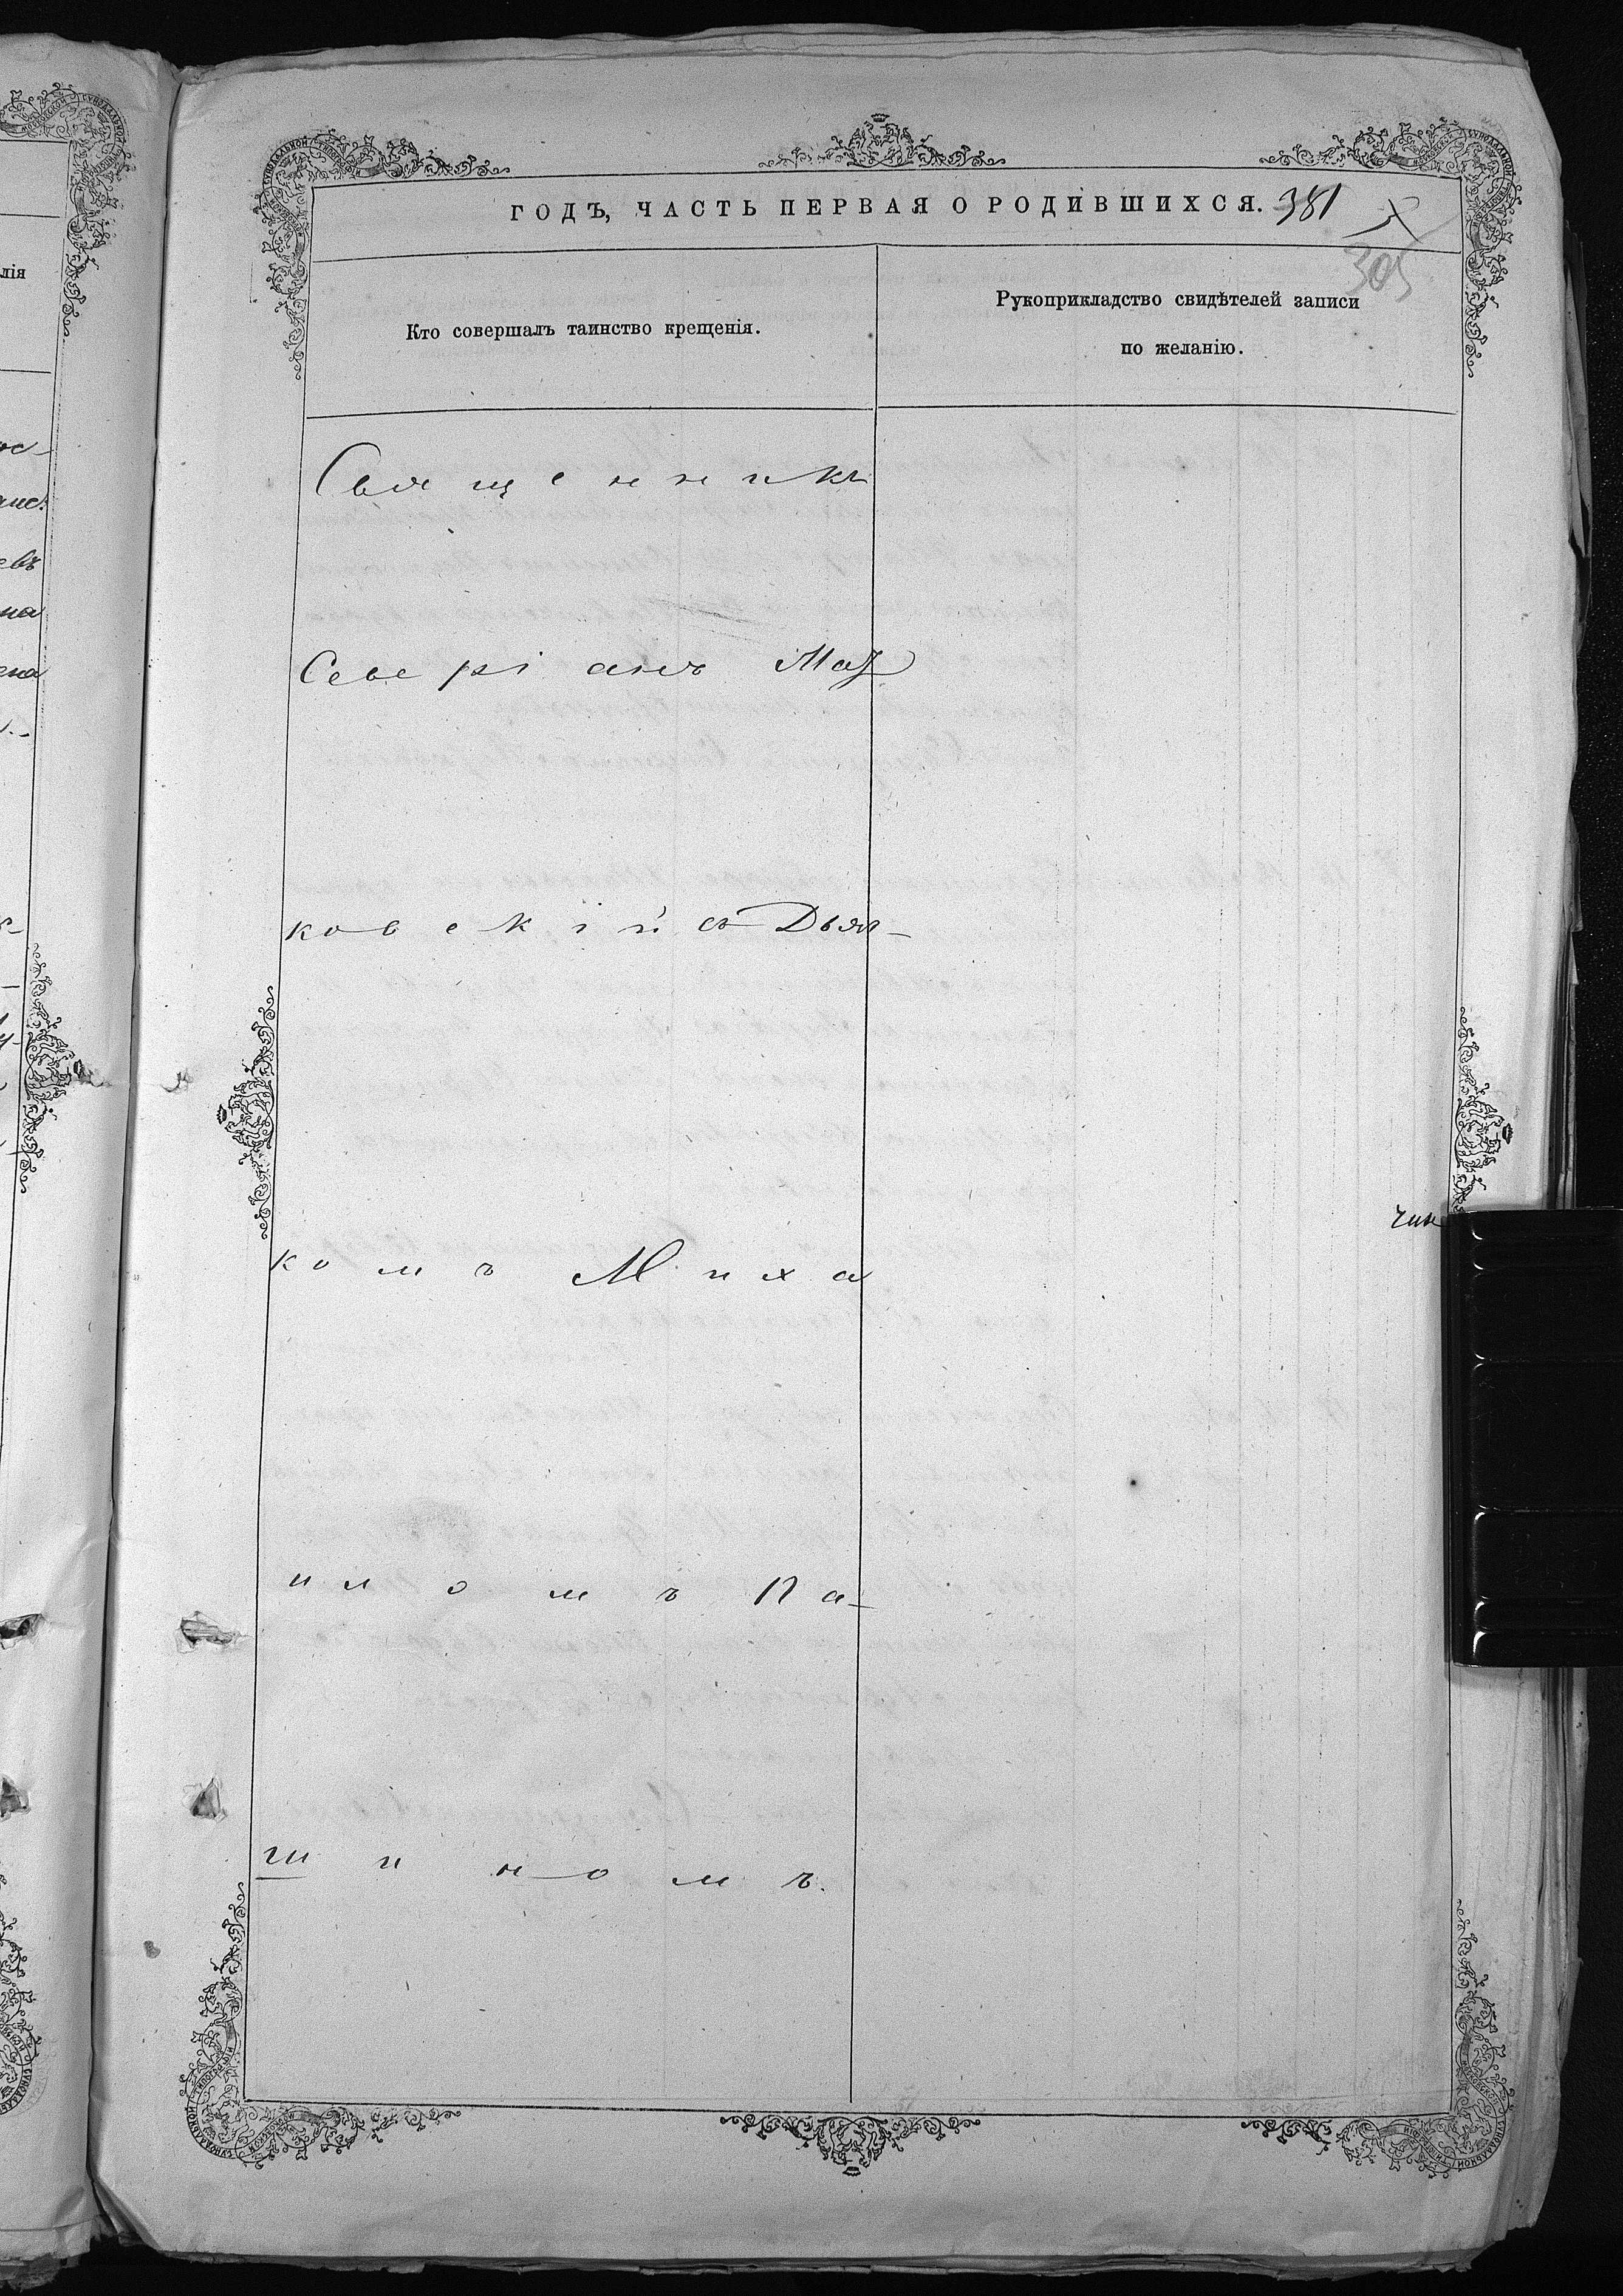 лія
евъ
на
ена
ГОДЪ, ЧАСТЬ ПЕРВАЯ О РОДИВШИХСЯ. 381
305
Кто совершалъ таинство крещенія.
Рукоприкладство свидѣтелей записи
по желанію.
Священникъ
Северіанъ Маз
ковскій съ Дьяч-
комъ Миха
иломъ Па-
шиномъ.